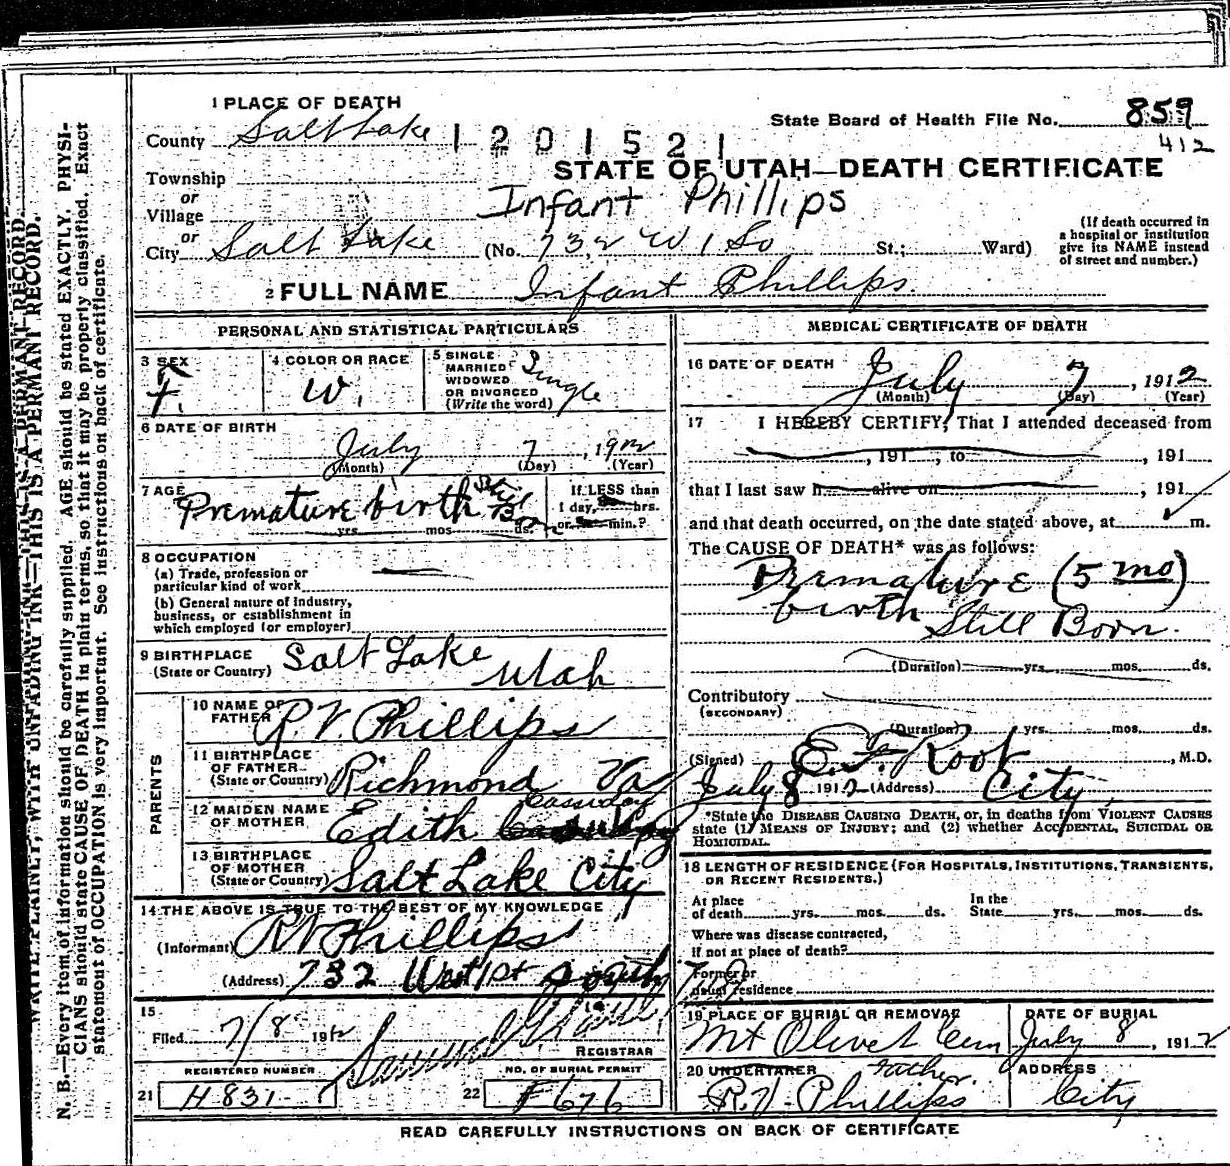 1 PLACE OF DEATH
State Board of Health File No. 859
County Salt Lake 1201521 412
STATE OF UTAH—DEATH CERTIFICATE
Township
or
Infant Phillips
Village
or
City Salt Lake (No. 732 W 1 So St.; Ward)
(If death occurred in
a hospital or institution
give its NAME instead
of street and number.)
2 FULL NAME Infant Phillips.
PERSONAL AND STATISTICAL PARTICULARS
3 SEX
F.
4 COLOR OR RACE
W.
5 SINGLE
MARRIED
WIDOWED
OR DIVORCED
(Write the word)
Single
6 DATE OF BIRTH
July 7, 1912
(Month) (Day) (Year)
7 AGE
Premature birth Still Born
yrs. mos. ds.
If LESS than
1 day, hrs.
or min.?
8 OCCUPATION
(a) Trade, profession or
particular kind of work
(b) General nature of industry,
business, or establishment in
which employed (or employer)
9 BIRTHPLACE
(State or Country)
Salt Lake Utah
PARENTS
10 NAME OF
FATHER
R.V. Phillips
11 BIRTHPLACE
OF FATHER
(State or Country)
Richmond Va
12 MAIDEN NAME
OF MOTHER
Edith Cassiday
13 BIRTHPLACE
OF MOTHER
(State or Country)
Salt Lake City
14 THE ABOVE IS TRUE TO THE BEST OF MY KNOWLEDGE
(Informant) RV Phillips
(Address) 732 West 1st South
15
Filed 7/8 1912
REGISTRAR
REGISTERED NUMBER
21 H 831
NO. OF BURIAL PERMIT
22 F676
MEDICAL CERTIFICATE OF DEATH
16 DATE OF DEATH
July 7, 1912
(Month) (Day) (Year)
17 I HEREBY CERTIFY, That I attended deceased from
, 191 , to , 191
that I last saw h alive on , 191
and that death occurred, on the date stated above, at m.
The CAUSE OF DEATH* was as follows:
Premature (5 mo)
birth Still Born.
(Duration) yrs. mos. ds.
Contributory
(SECONDARY)
(Duration) yrs. mos. ds.
(Signed) E. F. Root, M.D.
July 8 1912 (Address) City
*State the DISEASE CAUSING DEATH, or, in deaths from VIOLENT CAUSES
state (1) MEANS OF INJURY; and (2) whether ACCIDENTAL, SUICIDAL OR
HOMICIDAL.
18 LENGTH OF RESIDENCE (FOR HOSPITALS, INSTITUTIONS, TRANSIENTS,
OR RECENT RESIDENTS.)
At place
of death yrs. mos. ds.
In the
State yrs. mos. ds.
Where was disease contracted,
if not at place of death?
Former or
usual residence
19 PLACE OF BURIAL OR REMOVAL
Mt Olivet Cem
DATE OF BURIAL
July 8, 1912
20 UNDERTAKER father.
R.V. Phillips
ADDRESS
City
READ CAREFULLY INSTRUCTIONS ON BACK OF CERTIFICATE
WRITE PLAINLY, WITH UNFADING INK—THIS IS A PERMANT RECORD.
N. B.—Every item of information should be carefully supplied. AGE should be stated EXACTLY. PHYSI-
CIANS should state CAUSE OF DEATH in plain terms, so that it may be properly classified. Exact
statement of OCCUPATION is very important. See instructions on back of certificate.